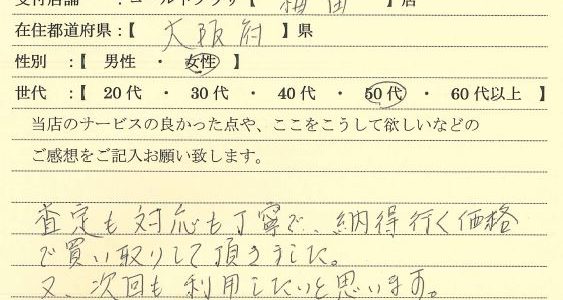 受付店舗 : ゴールドプラザ【 梅田 】店
在住都道府県:【 大阪府 】県
性別 :【 男性 ・ 女性 】
世代 :【 20代 ・ 30代 ・ 40代 ・ 50代 ・ 60代以上 】
当店のサービスの良かった点や、ここをこうして欲しいなどの
ご感想をご記入お願い致します。
査定も対応も丁寧で、納得行く価格
で買い取りして頂きました。
又、次回も利用したいと思います。